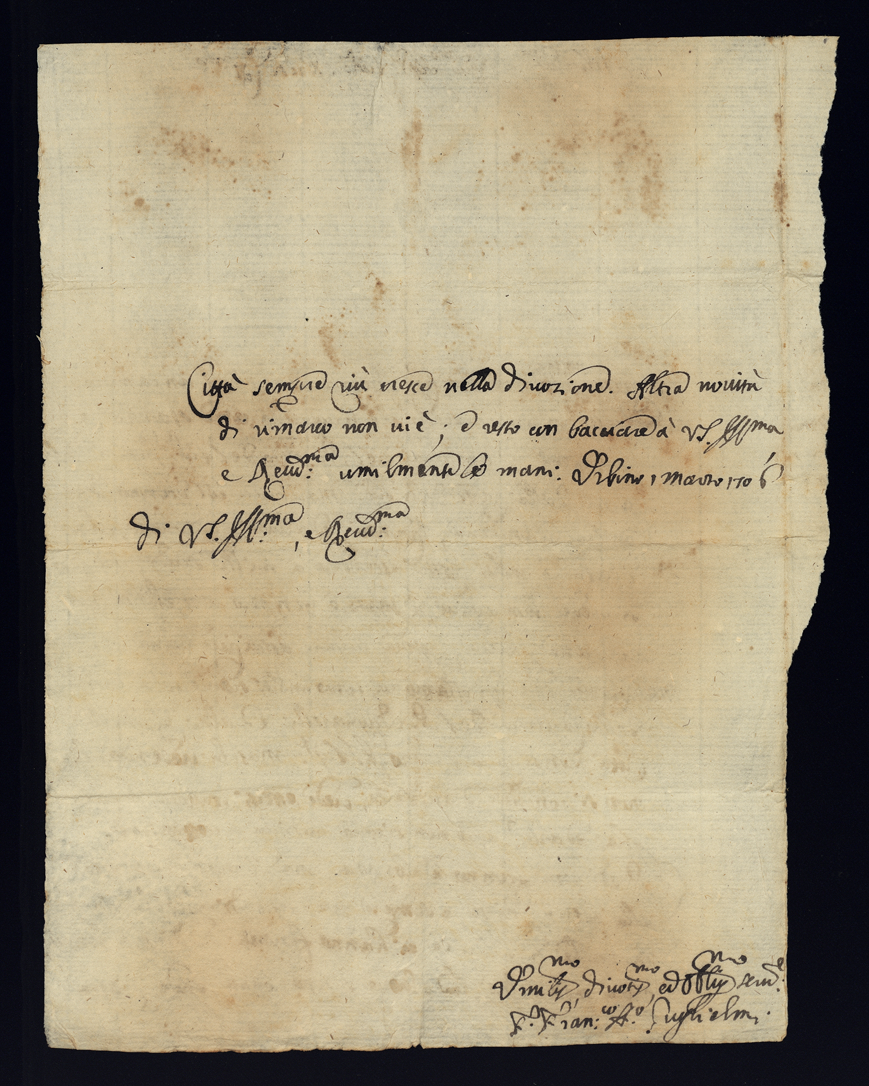 Città sempre più cresce nella divozione. Altra novità
di rimarco non vi è; e resto con baciare à VS. Illma
e Revd:ma umilmente le mani: Urbino 1 Marzo 1706
di VS. Ill:ma, e Revd:ma
Umilmo divotmo ed obblmo serve:
F. Fran:co A:o Guglielmi.